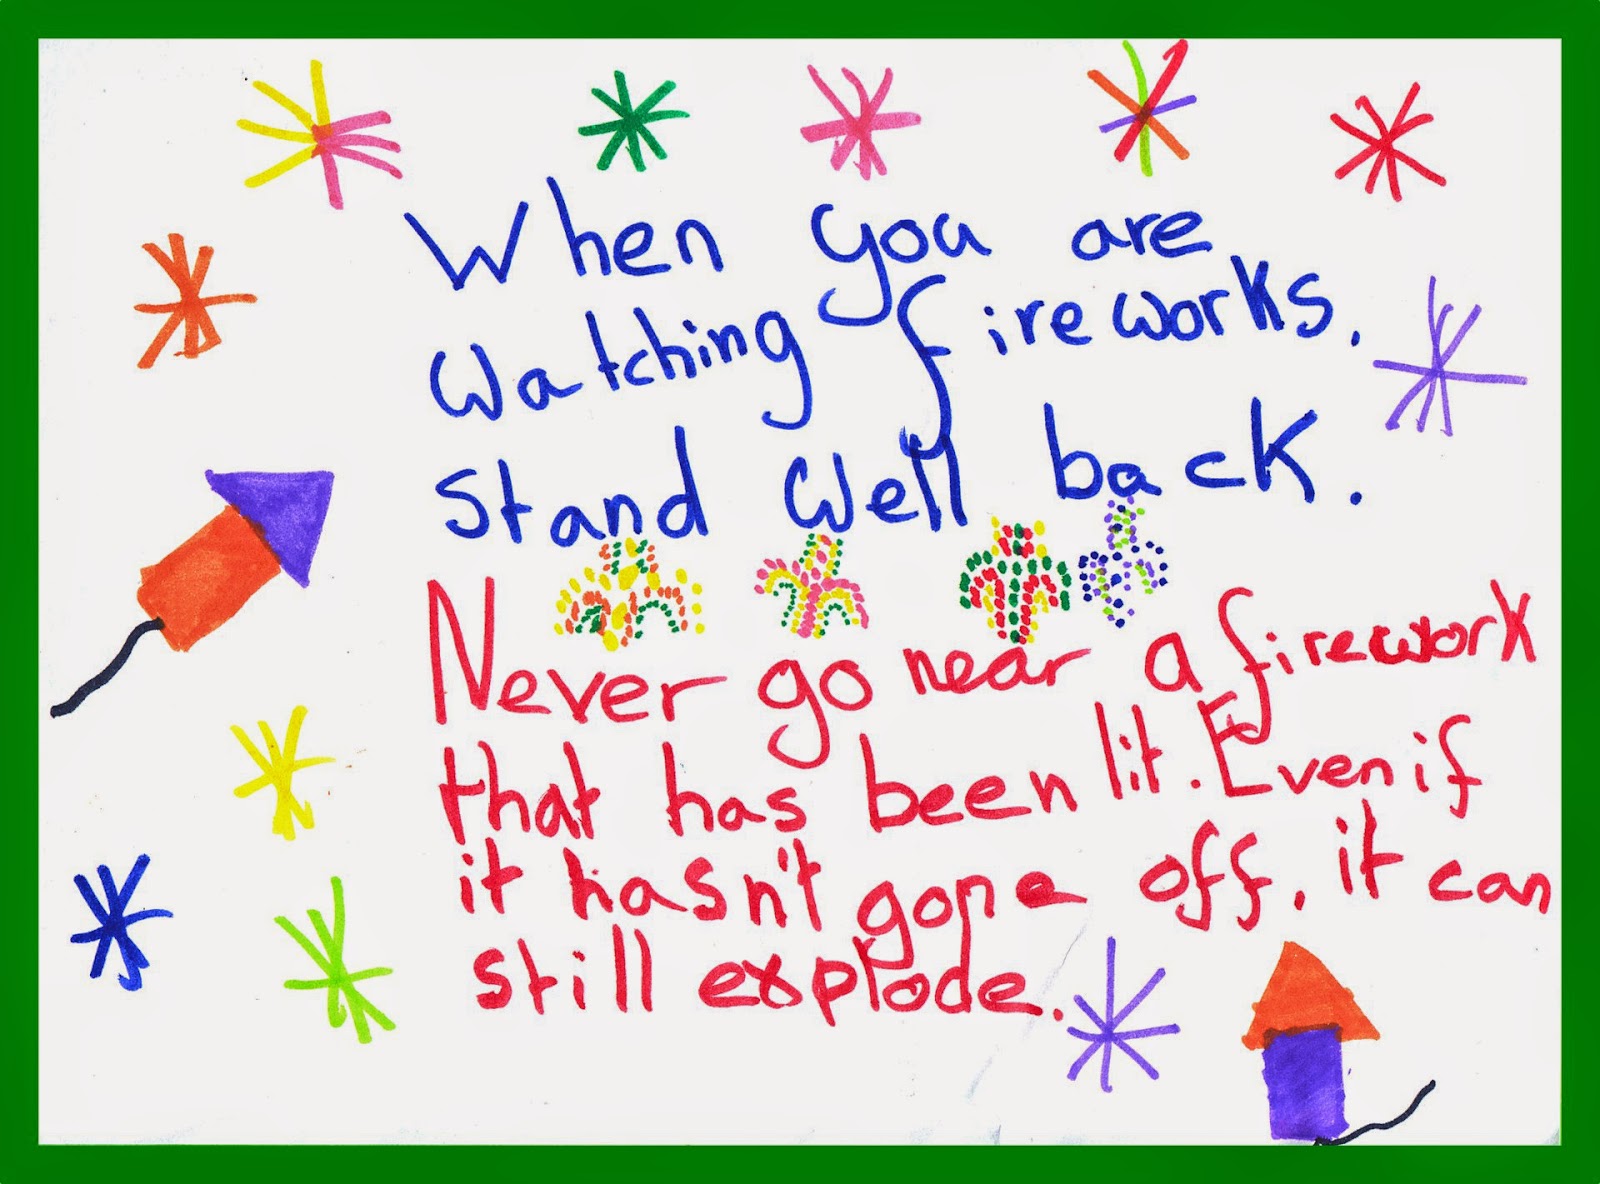 When you are
watching fireworks.
Stand well back.
Never go near a firework
that has been lit. Even if
it hasn't gone off, it can
still explode.